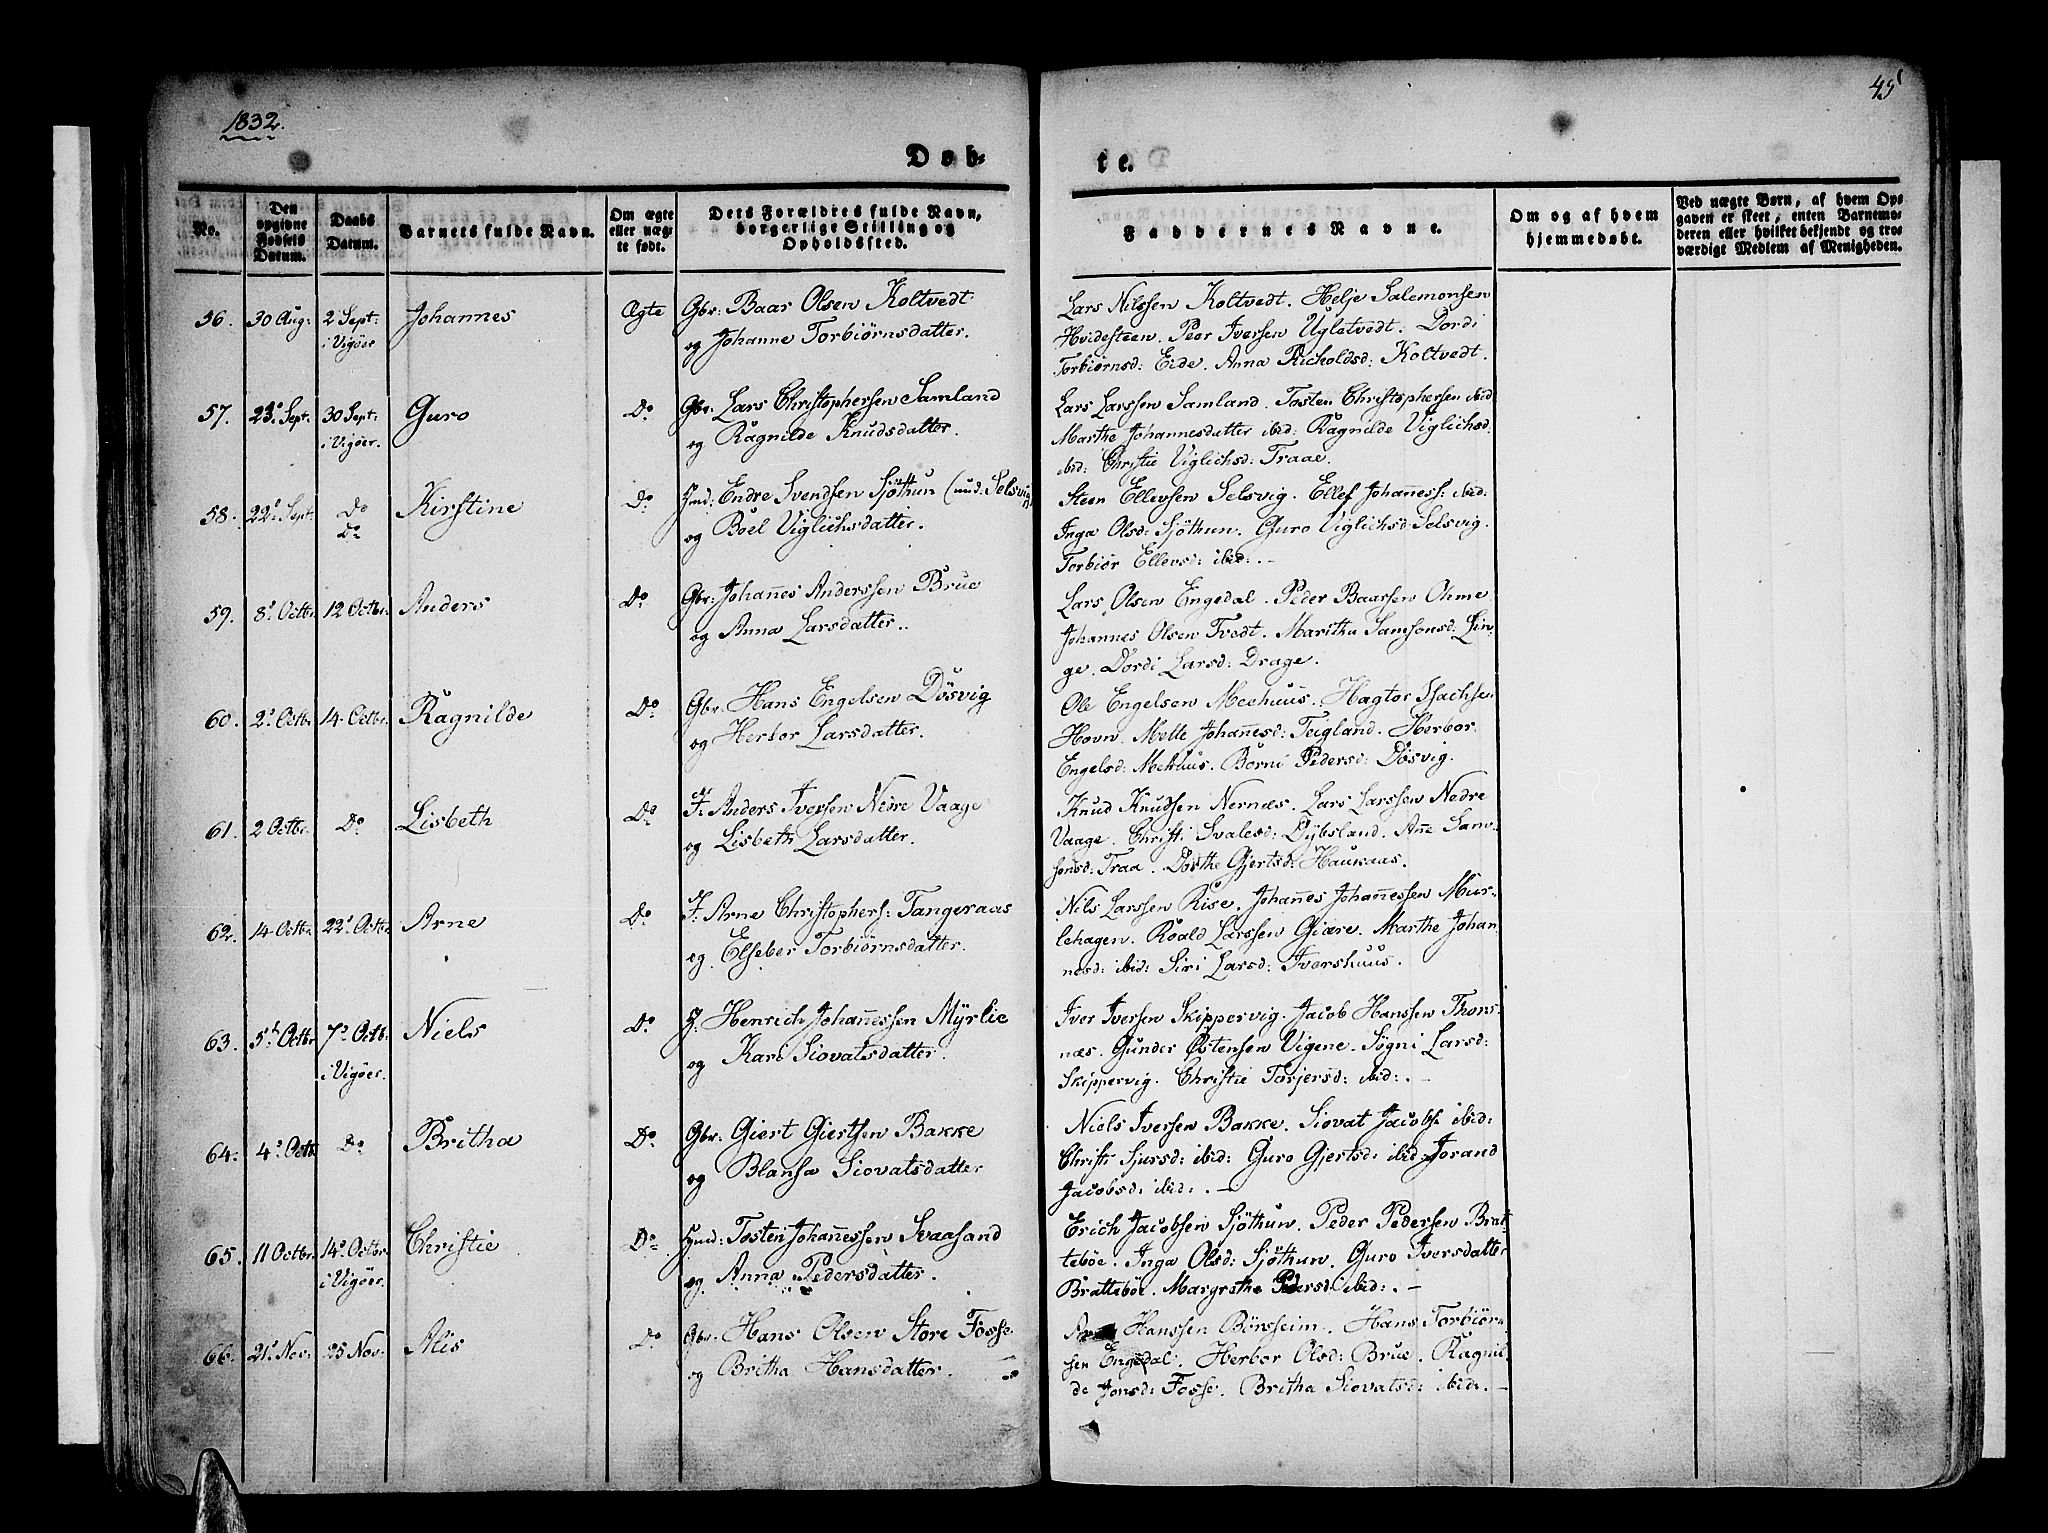 1832.
45
Døb-
te.
No.
Den opgivne Fødsels Datum.
Daabs Datum.
Barnets fulde Navn.
Om ægte eller uægte født.
Dets Forældres fulde Navn, borgerlige Stilling og Opholdssted.
Faddernes Navne.
Om og af hvem hjemmedøbt.
Ved uægte Børn, af hvem Opgaven er skeet, enten Barnemoderen eller hvilket bekjendt og troværdigt Medlem af Menigheden.
56. 30 Aug: 2 Sept: i Vigöer Johannes Ægte Gbr: Baar Olsen Koltvedt
og Johanne Torbiørnsdatter.
Lars Nilssen Koltvedt. Helje Salemonsen
Hvidesteen. Peer Iversen Uglatvedt. Dordi
Torbiørnsd: Eide. Anna Richoldsd: Koltvedt.
57. 23de Sept. 30 Sept: i Vigöer. Guro Do Gbr: Lars Christophersen Samland
og Ragnilde Knudsdatter.
Lars Larssen Samland. Tosten Christophersen ibid
Marthe Johannesdatter ibid: Ragnilde Viglichsd:
ibid: Christie Viglichsd: Traae.
58. 22de Sept: Do Do Kirstine Do Ind: Endre Svendsen Sjöthun (nud: Selsvig)
og Boel Viglichsdatter.
Steen Ellevsen Selsvig. Ellef Johaness: ibid:
Inga Olsd: Sjöthun. Guro Viglichsd: Selsvig.
Torbiør Ellevsd: ibid: . -
59. 8de Octbr. 12 Octbr. Anders Do Gbr: Johanes Anderssen Brue
og Anna Larsdatter.
Lars Olsen Engedal. Peder Baarsen Ohme
Johannes Olsen Tvedt. Maritha Samsonsd: Lin-
ge. Dordi Larsd: Drage.
60. 2de Octbr 14 Octbr. Ragnilde Do Gbr. Hans Engelsen Dösvig
og Herbor Larsdatter.
Ole Engelsen Meehuus. Hagtor Isachsen
Hovn. Mette Johanesd: Teigland. Herbor
Engelsd: Mehuus. Borni Pedersd: Dösvig.
61. 2 Octbr. Do Lisbeth Do I: Anders Iversen Nedre Vaage
og Lisbeth Larsdatter.
Knud Knudsen Nernæs. Lars Larssen Nedre
Vaage. Christi Svalesd: Dybsland. Ane Sam-
sonsd: Traa. Dorthe Gjertsd: Haukaas.
62. 14 Octbr 22de Octbr Arne Do I: Arne Christophers: Tangeraas
og Elseber Torbiørnsdatter.
Nils Larssen Rise. Johanes Johanessen Mur-
lehagen. Roald Larssen Giære. Marthe Johan
nesd: ibid: Siri Larsd: Ivershuus.
63. 5te Octbr 7de Octb: i Vigöer. Niels Do I. Henrich Johanessen Myrlie
og Kari Siovatsdatter.
Iver Iversen Skippervig. Jacob Hanssen Thors-
næs. Gunder Østensen Vigene. Sögni Larsd:
Skippervig. Christie Torjersd: ibid: . -
64. 4de Octb Do Britha Do Gbr: Giert Giertsen Bakke
og Blansa Siovatsdatter
Niels Iversen Bakke. Siovat Jacobs: ibid:
Christi Sjursd: ibid: Guro Gjertsd: ibid. Jorand
Jacobsd: ibid: . -
65. 11 Octbr. 14de Octbr i Vigöer. Christie Do Ind: Tosten Johanessen Svaasand
og Anna Pedersdatter.
Erich Jacobsen Sjöthun. Peder Pedersen Brat-
teböe. Inga Olsd: Sjöthun. Guro Iversdatter
Bratteböe. Margrethe Pedersd: ibid: . -
66. 21de Nov: 25 Nov: Alis Do Gbr: Hans Olsen Store Fosse
og Britha Hansdatter.
Hanssen Börsheim. Hans Torbiørn
sen Engedal. Herbor Olsd: Brue. Ragnil-
de Jonsd: Fosse. Britha Siovatsd: ibid: . -